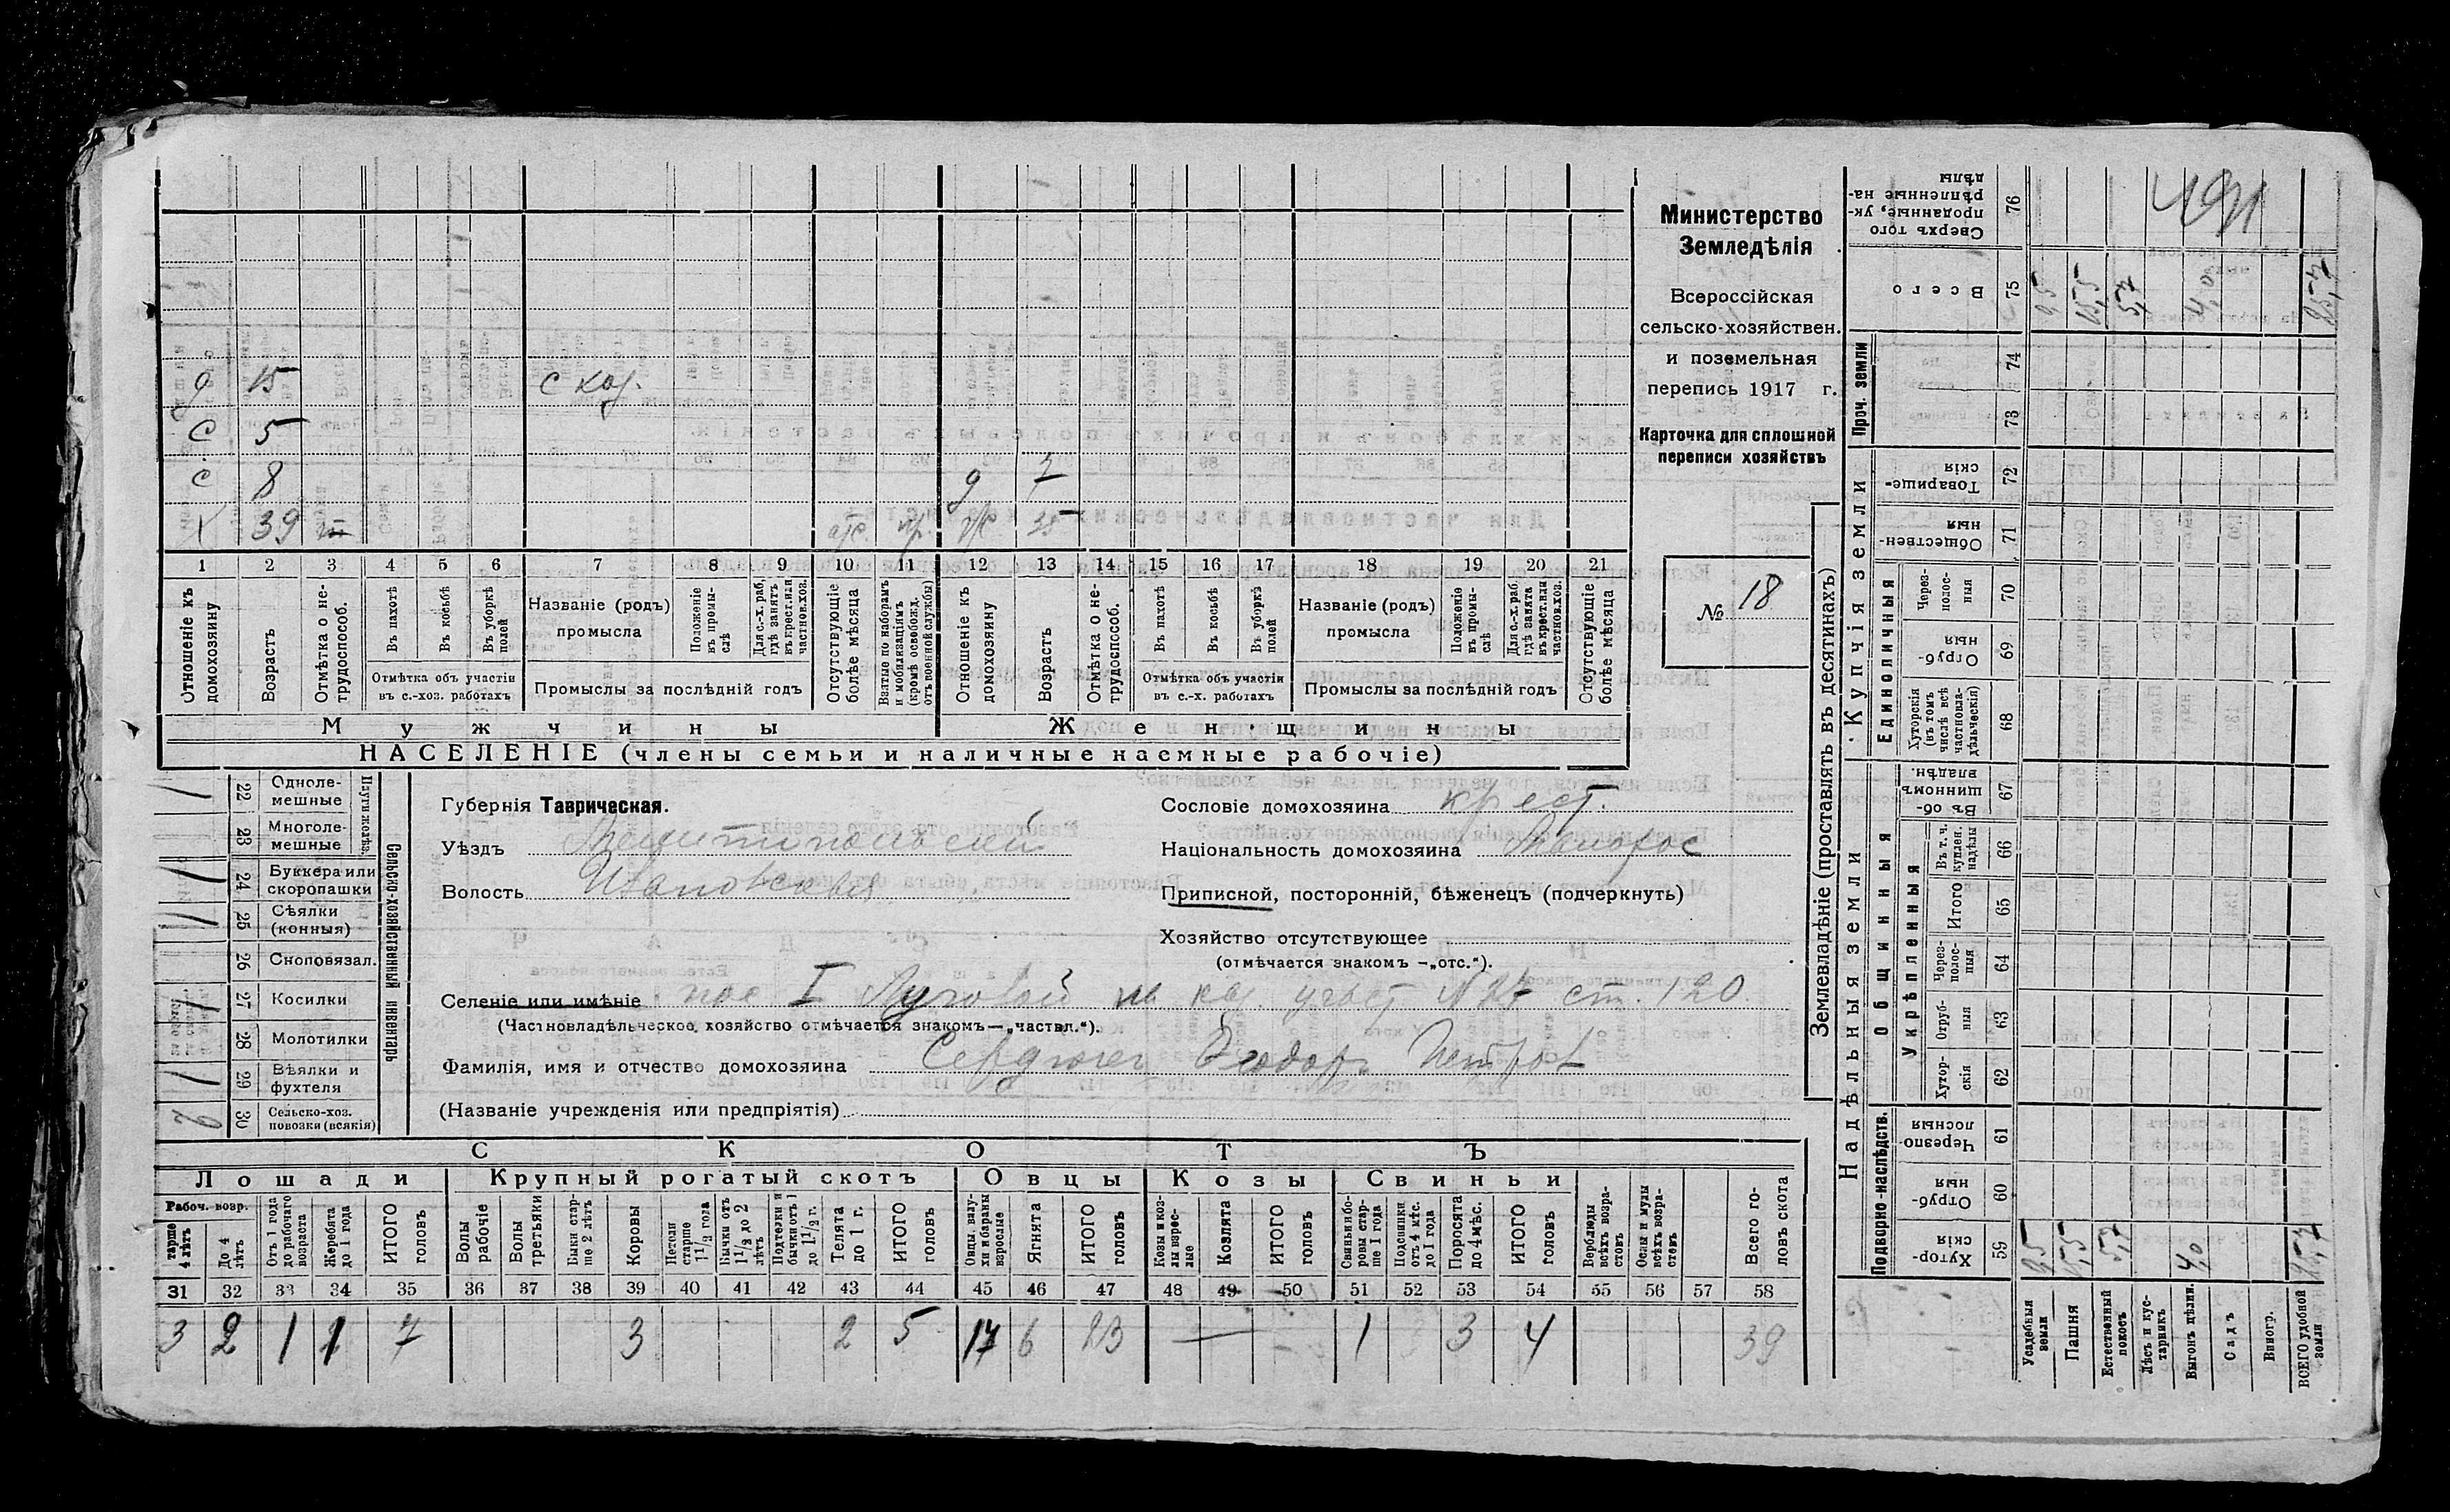 Министерство
Земледѣлія
Всероссійская
сельско-хозяйствен.
и поземельная
перепись 1917 г.
Карточка для сплошной
переписи хозяйствъ
№ 18
д 15 с хоз.
с 5
с 8 д 7
х 39 отс. пр. 35
1 2 3 4 5 6 7 8 9 10 11 12 13 14 15 16 17 18 19 20 21
Отношеніе къ домохозяину
Возрастъ
Отмѣтка о не-трудоспособ.
Въ пахотѣ
Въ косьбѣ
Въ уборкѣ полей
Отмѣтка объ участіи въ с.-хоз. работахъ
Названіе (родъ) промысла
Положеніе въ промы-слѣ
Для с.-х. раб, гдѣ занятъ въ крест. или частнов. хоз.
Промыслы за послѣдній годъ
Отсутствующіе болѣе мѣсяца
Взятые по наборамъ и мобилизаціямъ (кромѣ освобожд. отъ военной службы)
Отношеніе къ домохозяину
Возрастъ
Отмѣтка о не-трудоспособ.
Въ пахотѣ
Въ косьбѣ
Въ уборкѣ полей
Отмѣтка объ участіи въ с.-х. работахъ
Названіе (родъ) промысла
Положеніе въ промы-слѣ
Для с.-х. раб. гдѣ занята въ крест. или частнов. хоз.
Промыслы за послѣдній годъ
Отсутствующіе болѣе мѣсяца
Мужчины Женщины
НАСЕЛЕНІЕ (члены семьи и наличные наемные рабочіе)
Сельско-хозяйственный инвентарь
22 Одноле-мешные
23 Многоле-мешные
24 Буккера или скоропашки
25 Сѣялки (конныя)
26 Сноповязал.
27 Косилки
28 Молотилки
29 Вѣялки и фухтеля
30 Сельско-хоз. повозки (всякія)
Губернія Таврическая.
Уѣздъ Мелитопольский
Волость Ивановская
Сословіе домохозяина крест.
Національность домохозяина Малорос
Приписной, посторонній, бѣженецъ (подчеркнуть)
Хозяйство отсутствующее
(отмѣчается знакомъ —„отс.“).
Селеніе или имѣніе пос I Луговой уч. ст. 120
(Частновладѣльческое хозяйство отмѣчается знакомъ—„частвл.“).
Фамилія, имя и отчество домохозяина Сердюк Федор Петров
(Названіе учрежденія или предпріятія)
СКОТЪ
Лошади Крупный рогатый скотъ Овцы Козы Свиньи
Рабоч. возр.
тарше 4 лѣтъ
До 4 лѣтъ
Отъ 1 года до рабочаго возраста
Жеребята до 1 года
ИТОГО головъ
Волы рабочіе
Волы третьяки
Быки стар-ше 2 лѣтъ
Коровы
Нетели старше 1 1/2 года
Бычки отъ 1 1/2 до 2 лѣтъ
Подтелки и бычки отъ 1 до 1 1/2 г.
Телята до 1 г.
ИТОГО головъ
Овцы, валу-хи и бараны взрослые
Ягнята
ИТОГО головъ
Козы и коз-лы взрос-лые
Козлята
ИТОГО головъ
Свиньи бо-ровы стар-ше 1 года
Подсвинки отъ 4 мѣс. до 1 года
Поросята до 4 мѣс.
ИТОГО головъ
Верблюды всѣхъ возра-стовъ
Ослы и мулы всѣхъ возра-стовъ
Всего го-ловъ скота
31 32 33 34 35 36 37 38 39 40 41 42 43 44 45 46 47 48 49 50 51 52 53 54 55 56 57 58
3 2 1 1 7 3 2 5 17 6 23 — 1 3 4 39
Землевладѣніе (проставлять въ десятинахъ)
Купчія земли
Надѣльныя земли
Сверхъ того проданные, ук-рѣпленные на-дѣлы 76
Всего 75
Проч. земли 74 73
Товарище-скія 72
Обществен-ныя 71
Единоличныя
Через-полос-ныя 70
Отруб-ныя 69
Хуторскія (въ томъ числѣ всѣ частновла-дѣльческія) 68
Общинныя
Въ об-щинномъ владѣн. 67
Укрѣпленныя
Въ т. ч. куплен. надѣлы 66
Итого 65
Через-полос-ныя 64
Отруб-ныя 63
Хутор-скія 62
Подворно-наслѣдств.
Черезпо-лосныя 61
Отруб-ныя 60
Хутор-скія 59
Усадебныя земли
Пашня
Естественный покосъ
Лѣсъ и кус-тарникъ
Выгонъ цѣлин.
Садъ
Виногр.
ВСЕГО удобной земли
15,5 5,7 4,0
15,5 5,7 4,0